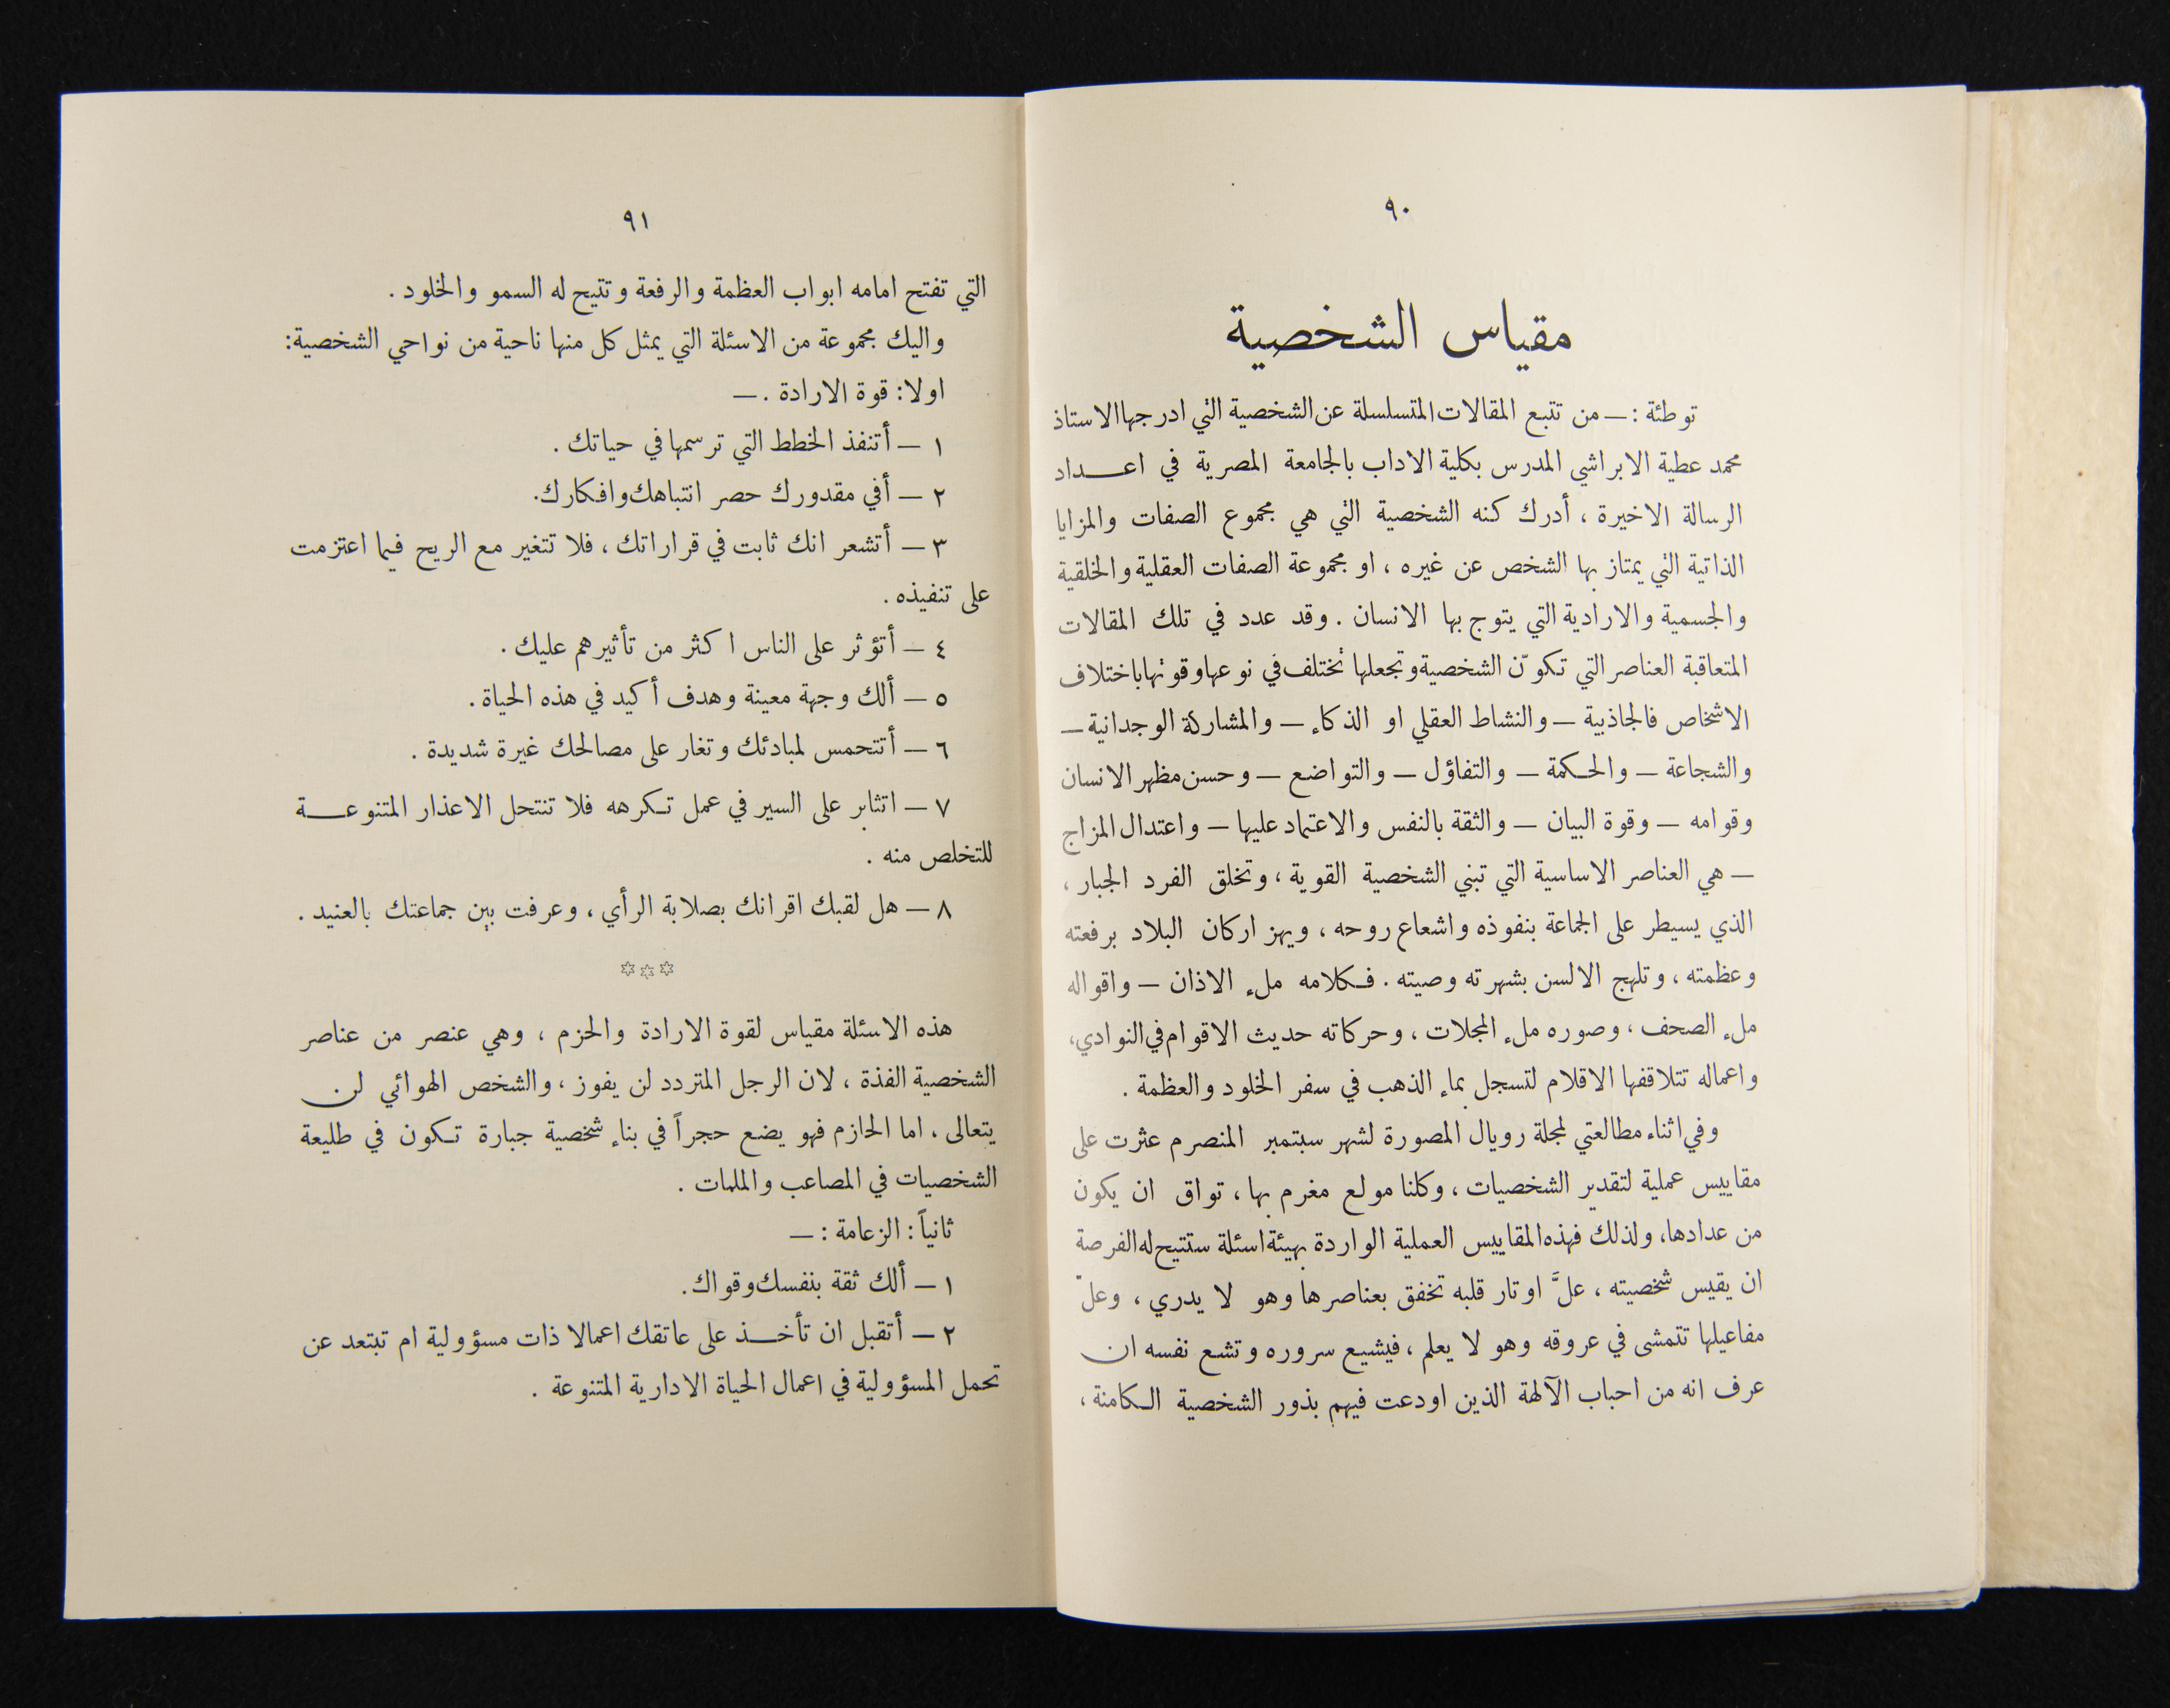 ٩٠
مقياس الشخصية
توطئة : — من تتبع المقالات المتسلسلة عن الشخصية التي ادرجها الاستاذ
محمد عطية الابراشي المدرس بكلية الاداب بالجامعة المصرية في اعــداد
الرسالة الاخيرة ، أدرك كنه الشخصية التي هي مجموع الصفات والمزايا
الذاتية التي يمتاز بها الشخص عن غيره ، او مجموعة الصفات العقلية والخلقية
والجسمية والارادية التي يتوج بها الانسان . وقد عدد في تلك المقالات
المتعاقبة العناصر التي تكوّن الشخصية وتجعلها تختلف في نوعها وقوتها باختلاف
الاشخاص فالجاذبية — والنشاط العقلي او الذكاء — والمشاركة الوجدانية —
والشجاعة — والحكمة — والتفاؤل — والتواضع — وحسن مظهر الانسان
وقوامه — وقوة البيان — والثقة بالنفس والاعتماد عليها — واعتدال المزاج
— هي العناصر الاساسية التي تبني الشخصية القوية ، وتخلق الفرد الجبار ،
الذي يسيطر على الجماعة بنفوذه واشعاع روحه ، ويهز اركان البلاد برفعته
وعظمته ، وتلهج الالسن بشهرته وصيته . فكلامه ملء الاذان — واقواله
ملء الصحف ، وصوره ملء المجلات ، وحركاته حديث الاقوام في النوادي،
واعماله تتلاقفها الاقلام لتسجل بماء الذهب في سفر الخلود والعظمة .
وفي اثناء مطالعتي لمجلة رويال المصورة لشهر سبتمبر المنصرم عثرت على
مقاييس عملية لتقدير الشخصيات ، وكلنا مولع مغرم بها ، تواق ان يكون
من عدادها، ولذلك فهذه المقاييس العملية الواردة بهيئة اسئلة ستتيح له الفرصة
ان يقيس شخصيته ، علَّ اوتار قلبه تخفق بعناصرها وهو لا يدري ، وعلّ
مفاعيلها تتمشى في عروقه وهو لا يعلم ، فيشيع سروره وتشع نفسه ان
عرف انه من احباب الآلهة الذين اودعت فيهم بذور الشخصية الكامنة ،
٩١
التي تفتح امامه ابواب العظمة والرفعة وتتيح له السمو والخلود .
واليك مجموعة من الاسئلة التي يمثل كل منها ناحية من نواحي الشخصية:
اولا: قوة الارادة . —
١ — أتنفذ الخطط التي ترسمها في حياتك .
٢ — أفي مقدورك حصر انتباهك وافكارك.
٣ — أتشعر انك ثابت في قراراتك ، فلا تتغير مع الريح فيما اعتزمت
على تنفيذه .
٤ — أتؤثر على الناس اكثر من تأثيرهم عليك .
٥ — ألك وجهة معينة وهدف أكيد في هذه الحياة .
٦ — أتتحمس لمبادئك وتغار على مصالحك غيرة شديدة .
٧ — اتثابر على السير في عمل تكرهه فلا تنتحل الاعذار المتنوعــة
للتخلص منه .
٨ — هل لقبك اقرانك بصلابة الرأي ، وعرفت بين جماعتك بالعنيد .
✡✡✡
هذه الاسئلة مقياس لقوة الارادة والحزم ، وهي عنصر من عناصر
الشخصية الفذة ، لان الرجل المتردد لن يفوز ، والشخص الهوائي لن
يتعالى ، اما الحازم فهو يضع حجراً في بناء شخصية جبارة تكون في طليعة
الشخصيات في المصاعب والملمات .
ثانياً : الزعامة : —
١ — ألك ثقة بنفسك وقواك.
٢ — أتقبل ان تأخــذ على عاتقك اعمالا ذات مسؤولية ام تبتعد عن
تحمل المسؤولية في اعمال الحياة الادارية المتنوعة .